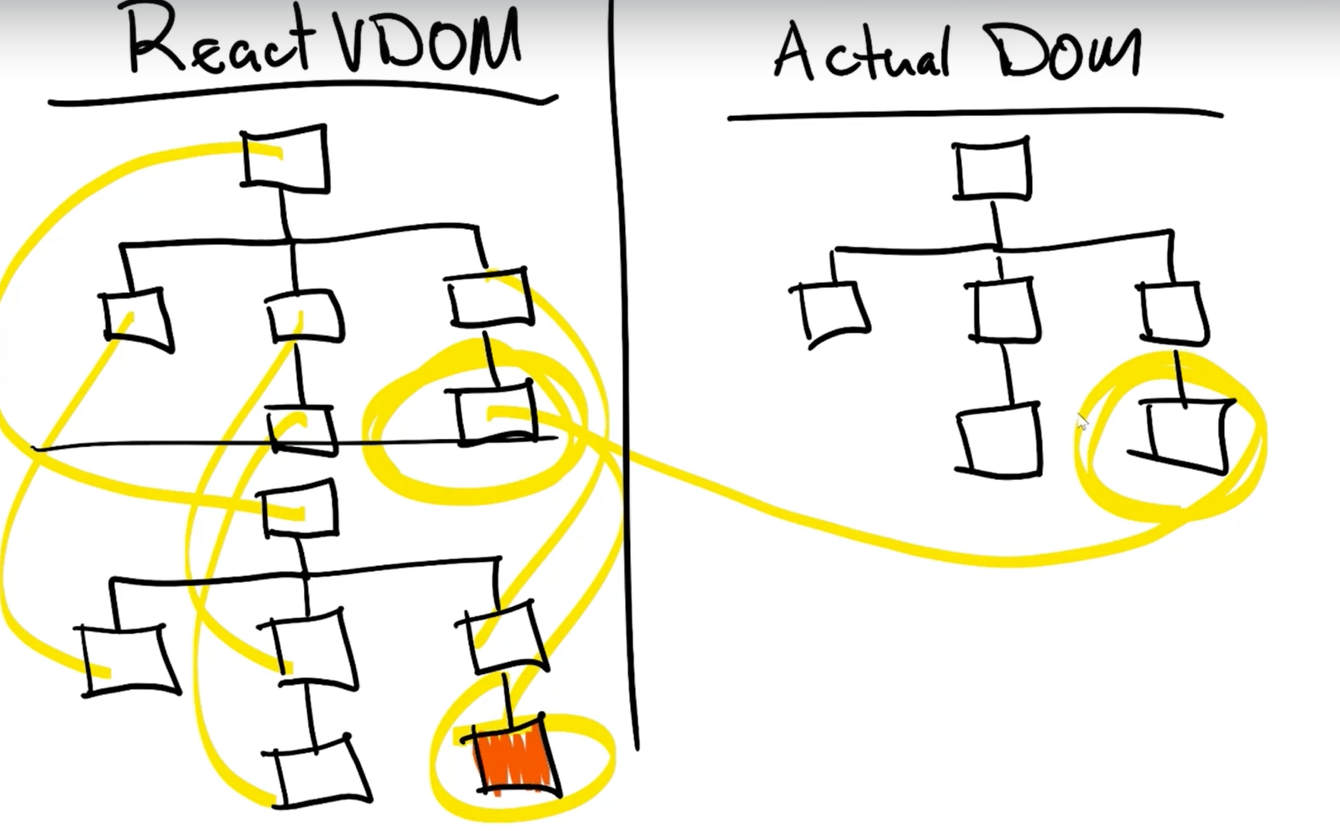 React VDOM
Actual DOM